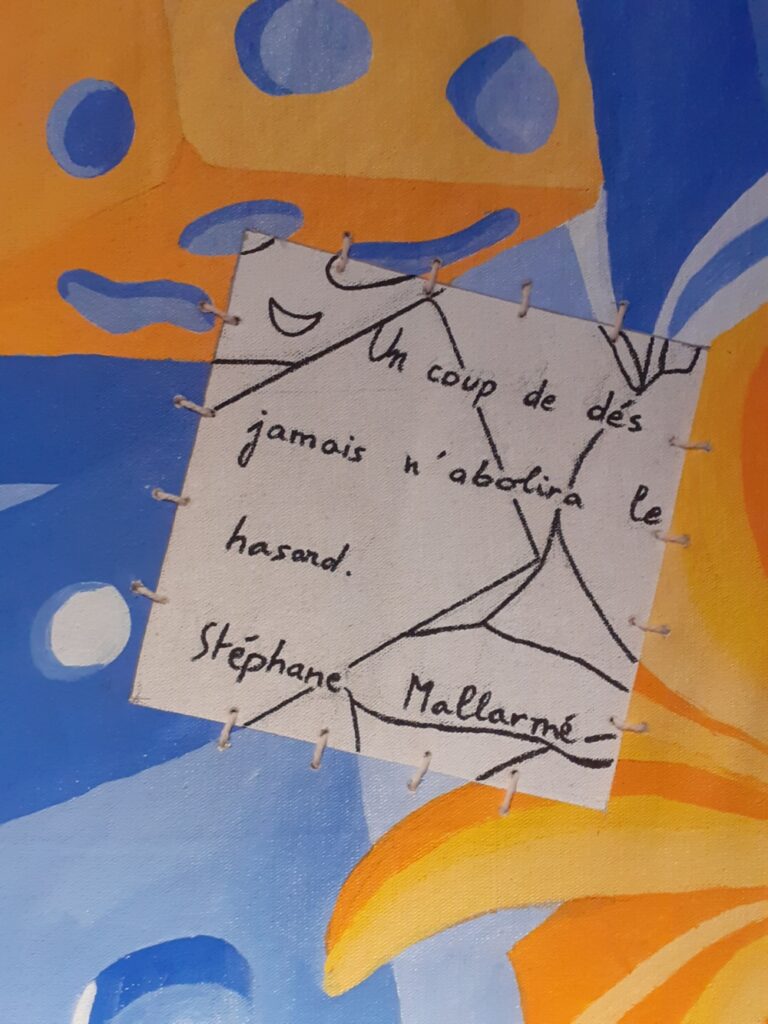 Un coup de dés
jamais n'abolira le
hasard.
Stéphane Mallarmé